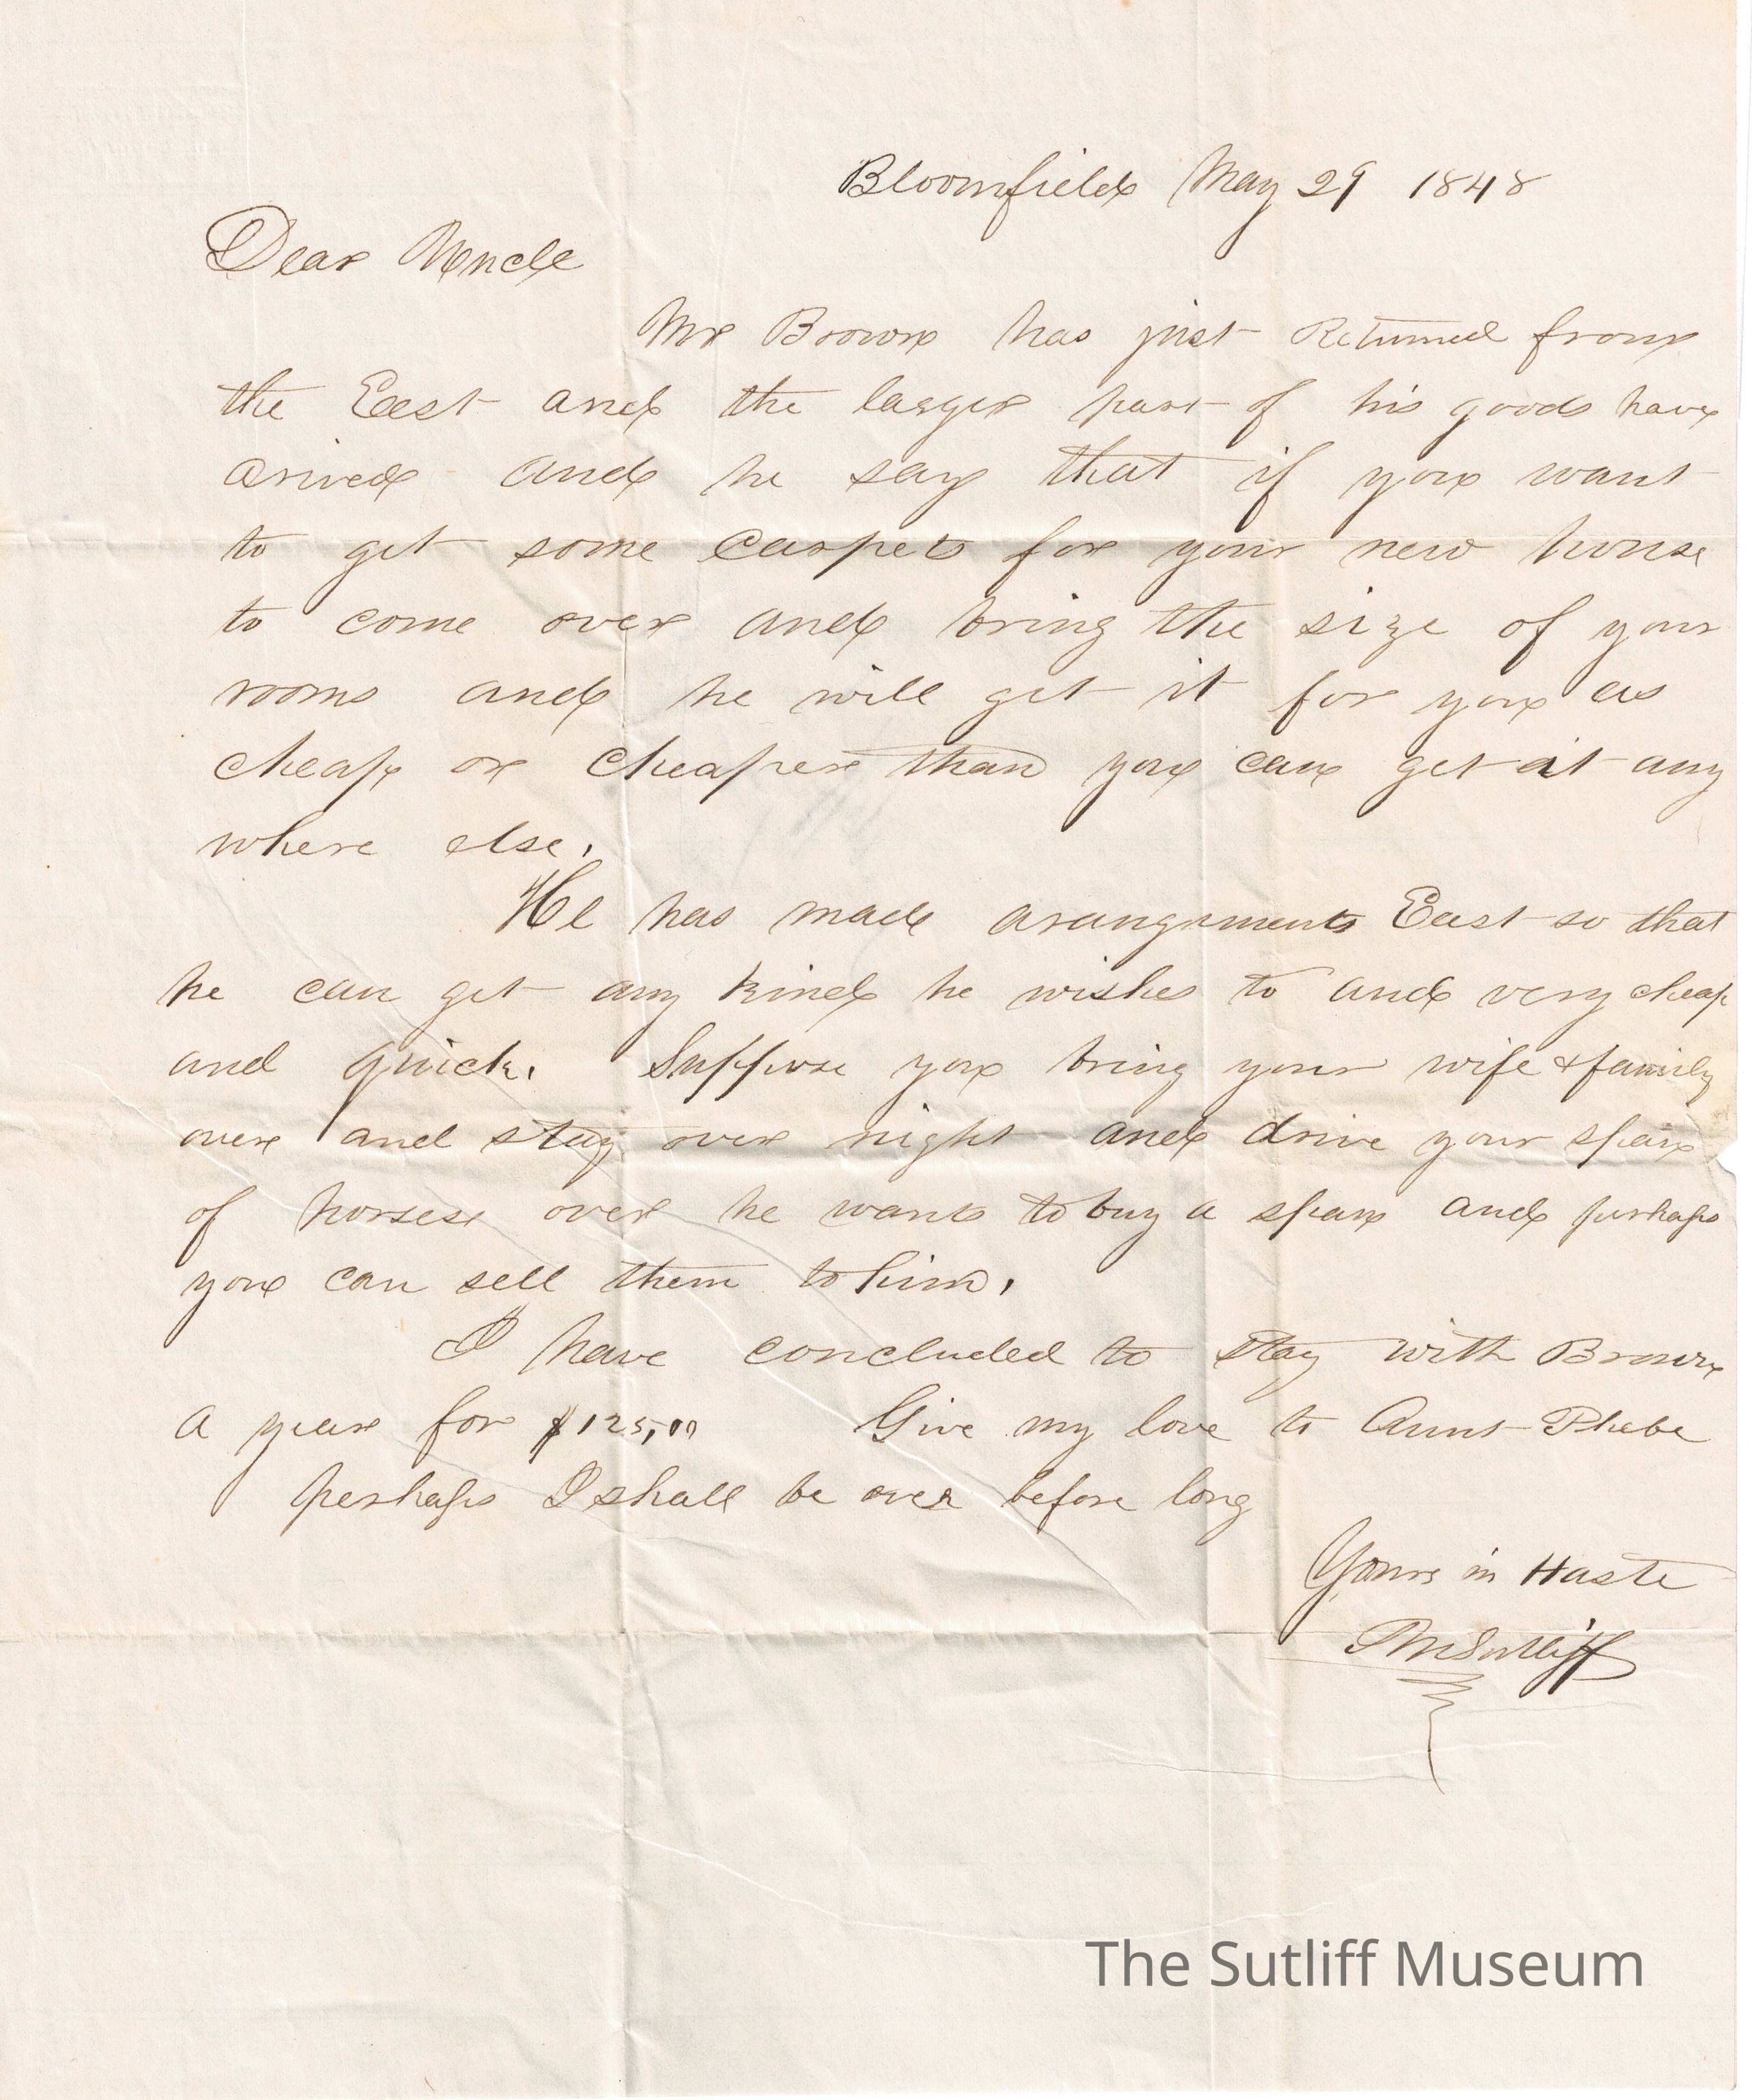 Bloomfield May 29 1848
Dear Uncle
Mr Brown has just Returned from
the East and the larger part of his goods have
arived and he say that if you want
to get some Carpets for your new house
to come over and bring the size of your
rooms and he will get it for you as
cheap or cheaper than you can get it any
where else.
He has made arangements East so that
he can get any kind he wishes to and very cheap
and quick. Suppose you bring your wife & family
over and stay over night and drive your span
of horses over he wants to buy a span and perhaps
you can sell them to him.
I have concluded to stay with Brown
a year for $125,00 Give my love to Aunt Phebe
perhaps I shall be over before long
Yours in Haste
Sutliff
The Sutliff Museum